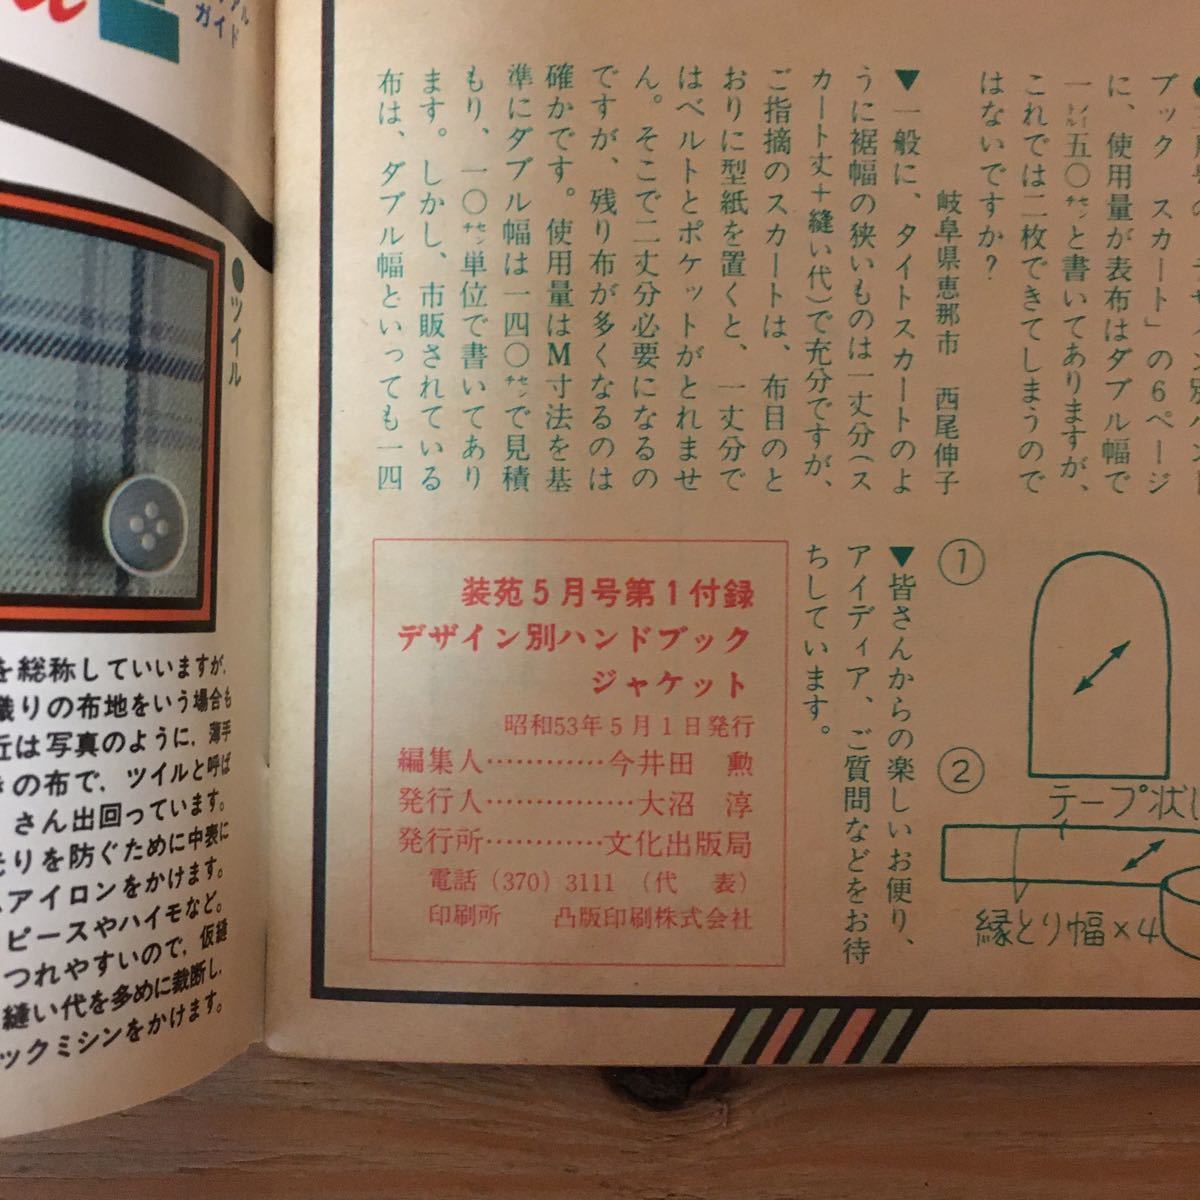 ガイド
●ツイル
を総称していいますが,
織りの布地をいう場合も
近は写真のように, 薄手
きの布で, ツイルと呼ば
さん出回っています。
そりを防ぐために中表に
アイロンをかけます。
ピースやハイモなど。
つれやすいので, 仮縫
縫い代を多めに裁断し,
ックミシンをかけます。
ブック スカート」の6ページ
に、使用量が表布はダブル幅で
一㍍五〇㌢と書いてありますが、
これでは二枚できてしまうので
はないですか?
岐阜県恵那市 西尾伸子
▼一般に、タイトスカートのよ
うに裾幅の狭いものは一丈分(ス
カート丈+縫い代)で充分ですが、
ご指摘のスカートは、布目のと
おりに型紙を置くと、一丈分で
はベルトとポケットがとれませ
ん。そこで二丈分必要になるの
ですが、残り布が多くなるのは
確かです。使用量はM寸法を基
準にダブル幅は一四〇㌢で見積
もり、一〇㌢単位で書いてあり
ます。しかし、市販されている
布は、ダブル幅といっても一四
▼皆さんからの楽しいお便り、
アイディア、ご質問などをお待
ちしています。
①
②
テープ状に
縁とり幅×4
装苑5月号第1付録
デザイン別ハンドブック
ジャケット
昭和53年5月1日発行
編集人…………今井田 勲
発行人……………大沼 淳
発行所…………文化出版局
電話 (370) 3111 (代 表)
印刷所 凸版印刷株式会社